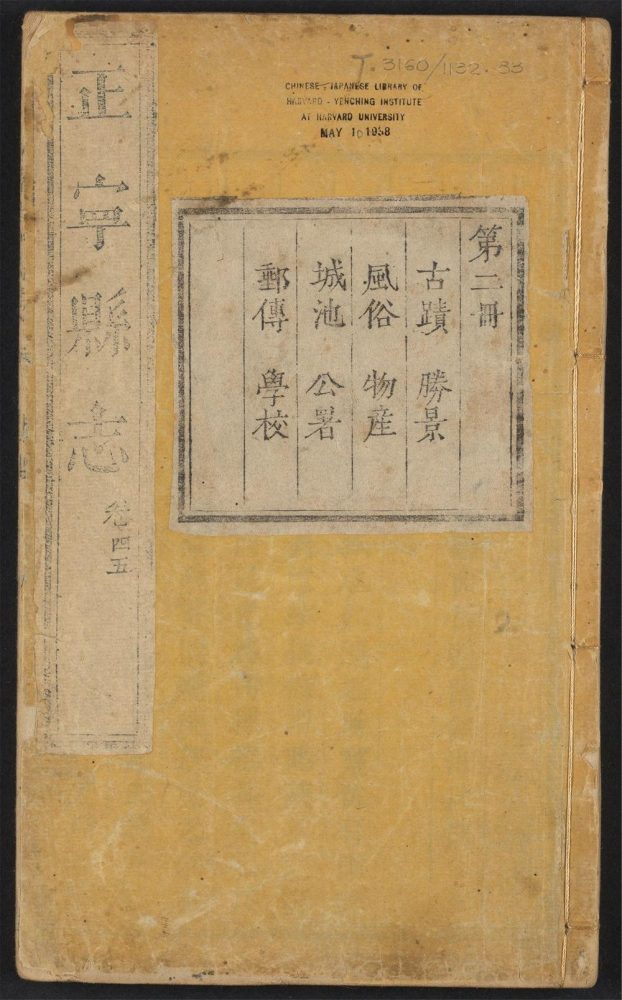 T.3160/1132.33
CHINESE-JAPANESE LIBRARY OF
HARVARD-YENCHING INSTITUTE
AT HARVARD UNIVERSITY
MAY 10 1938
第二冊
古蹟 勝景
風俗 物產
城池 公署
郵傳 學校
正寧縣志
卷四五
2